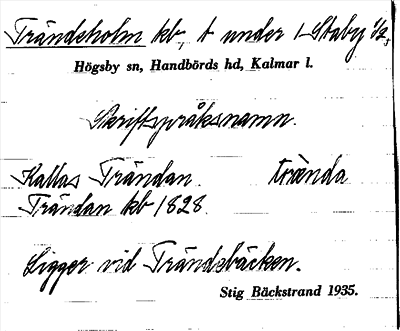 Trändeholm kb, t under 1 Staby 1/2,
Högsby sn, Handbörds hd, Kalmar l.
Skriftspråksnamn.
Kallas Trändan. trända
Trändan kb 1828.
Ligger vid Trändebäcken.
Stig Bäckstrand 1935.